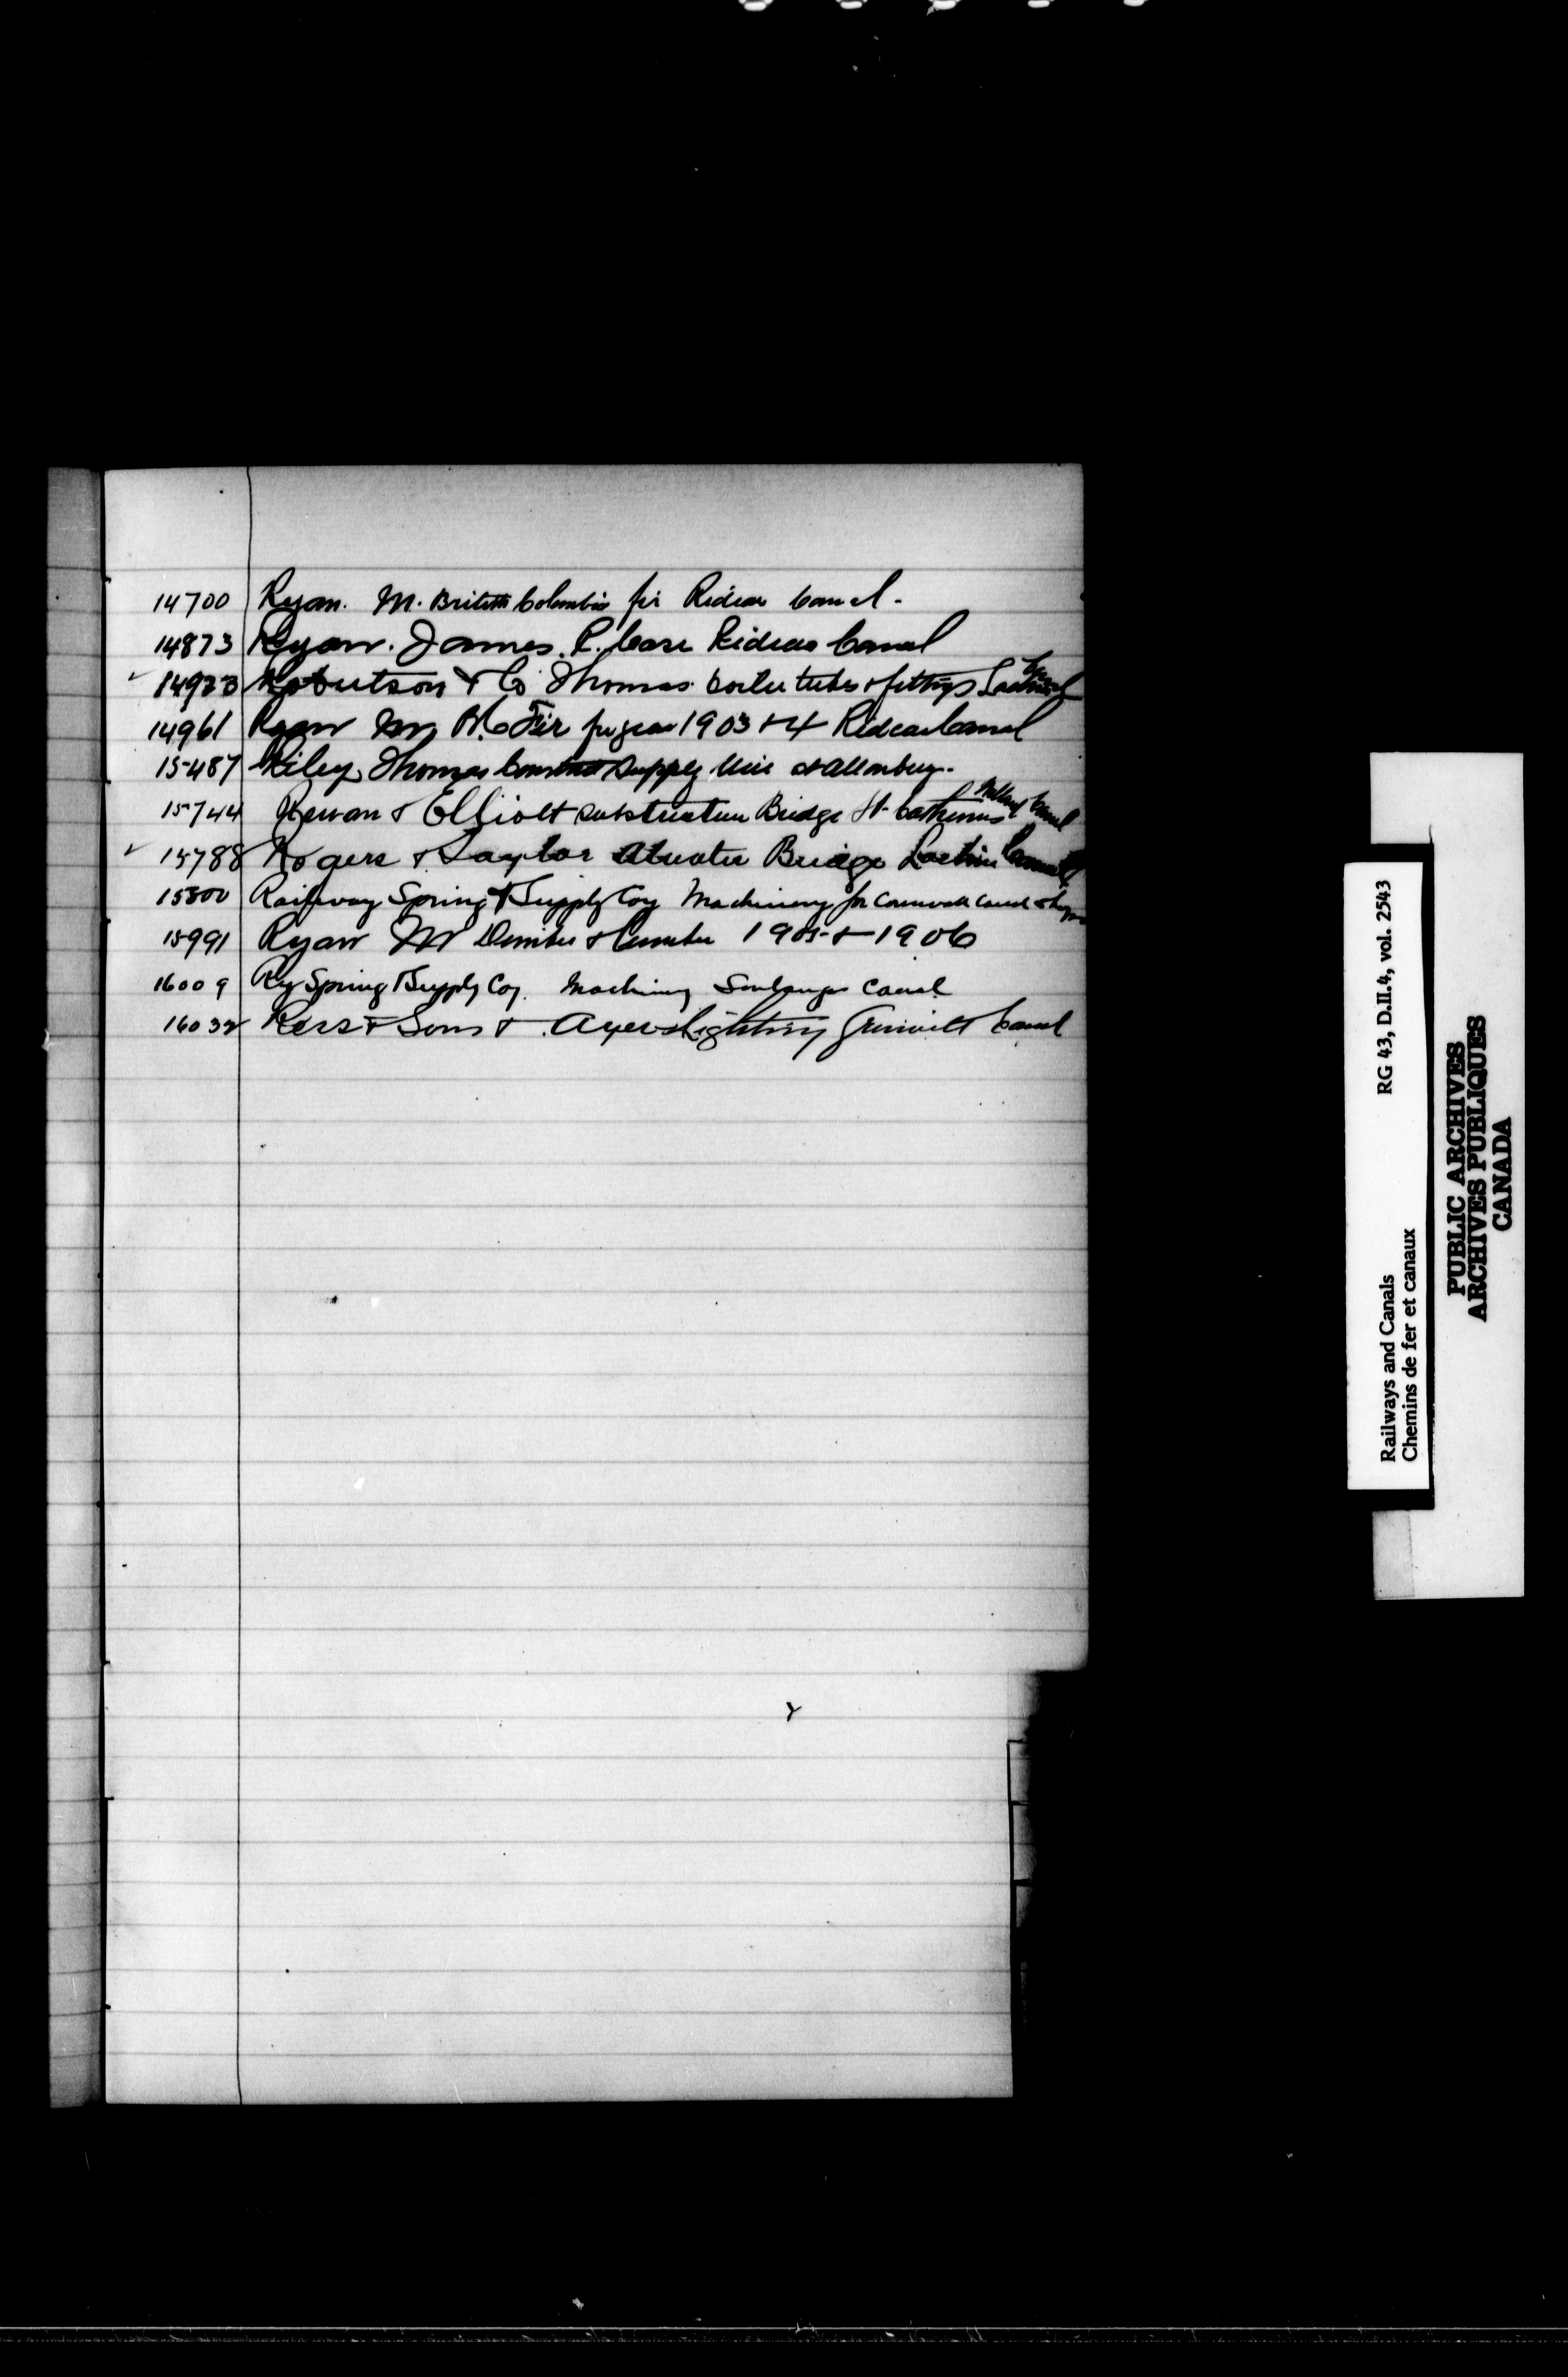 14700 Ryan. M. British Columbia fir Rideau Canal -
14873 Ryan. James. P. Case Rideau Canal
14923 Robertson & Co Thomas boiler tubes & fittings Lachine Canal
14961 Ryan M B.C. Fir for year 1903 & 4 Rideau Canal
15487 Riley Thomas Contract Supply at Allanburg.
15744 & Elliott substructure Bridge St. Catherines Welland Canal
15788 Rogers & Taylor Atwater Bridge Lachine Canal
15800 Railway Spring & Supply Coy Machinery for Cornwall Canal
15991 Ryan M Dimber & Cumber 1905 & 1906
16009 Ry Spring & Supply Coy. Machinery Soulanges Canal
16032 Ross & Sons & Ayer Lighting Grenville Canal
Railways and Canals RG 43, D.II.4, vol. 2543
Chemins de fer et canaux
PUBLIC ARCHIVES
ARCHIVES PUBLIQUES
CANADA